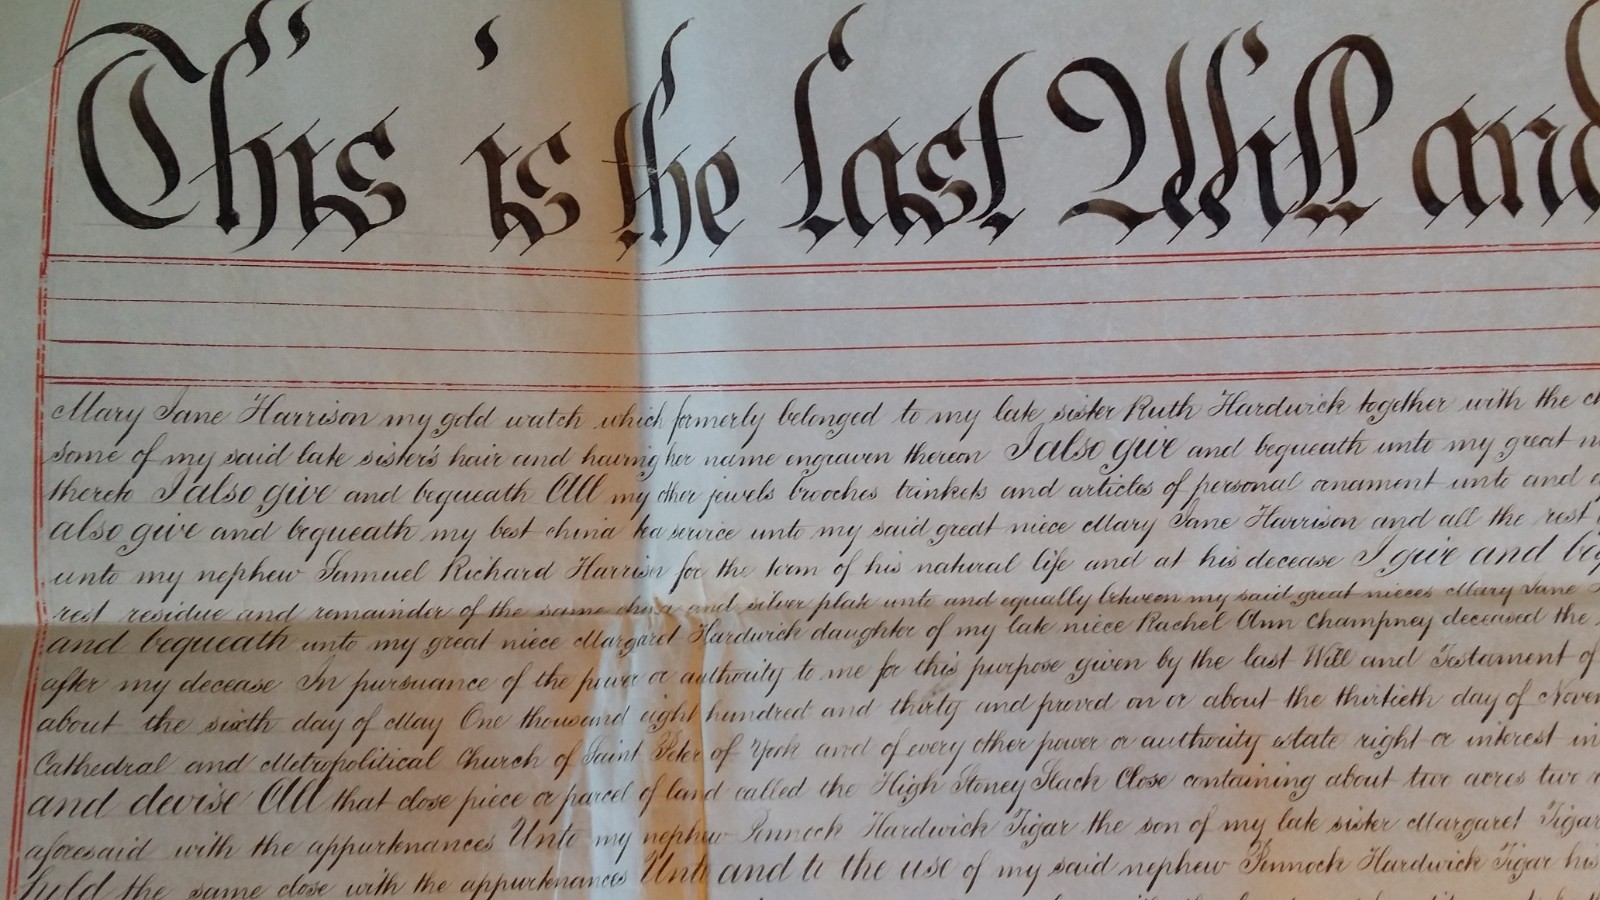 This is the Last Will and
Mary Jane Harrison my gold watch which formerly belonged to my late sister Ruth Hardwick together with the
some of my said late sister's hair and having her name engraven thereon I also give and bequeath unto my great
thereto I also give and bequeath All my other jewels brooches trinkets and articles of personal ornament unto and
also give and bequeath my best china tea service unto my said great niece Mary Jane Harrison and all the rest
unto my nephew Samuel Richard Harrison for the term of his natural life and at his decease I give and
rest residue and remainder of the same china and silver plate unto and equally between my said great nieces Mary Jane
and bequeath unto my great niece Margaret Hardwick daughter of my late niece Rachel Ann Champney deceased the
after my decease In pursuance of the power or authority to me for this purpose given by the last Will and Testament of
about the sixth day of May One thousand eight hundred and thirty and proved on or about the thirtieth day of
Cathedral and Metropolitical Church of Saint Peter of York and of every other power or authority estate right or interest in
and devise All that close piece or parcel of land called the High Stoney Slack Close containing about two acres two
aforesaid with the appurtenances Unto my nephew Pennock Hardwick Tigar the son of my late sister Margaret Tigar
hold the same close with the appurtenances Unto and to the use of my said nephew Pennock Hardwick Tigar his